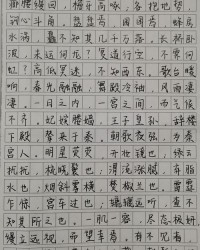 廊腰缦回，檐牙高啄；各抱地势，
钩心斗角。盘盘焉，囷囷焉，蜂房
水涡，矗不知其几千万落。长桥卧
波，未云何龙？复道行空，不霁何
虹？高低冥迷，不知西东。歌台暖
响，春光融融；舞殿冷袖，风雨凄
凄。一日之内，一宫之间，而气候
不齐。妃嫔媵嫱，王子皇孙，辞楼
下殿，辇来于秦。朝歌夜弦，为秦
宫人。明星荧荧，开妆镜也；绿云
扰扰，梳晓鬟也；渭流涨腻，弃脂
水也；烟斜雾横，焚椒兰也。雷霆
乍惊，宫车过也；辘辘远听，杳不
知其所之也。一肌一容，尽态极妍，
缦立远视，而望幸焉。有不见者，